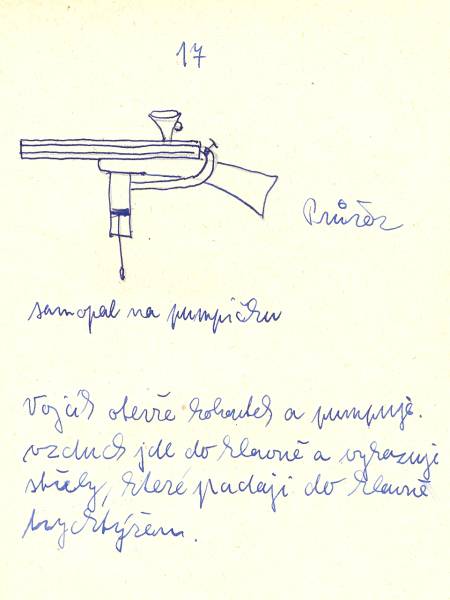 17
Průřez
samopal na pumpičku
Vojín otevře kohoutek a pumpuje.
vzduch jde do hlavně a vyhazuje
střely, které padají do hlavně
trychtýřem.